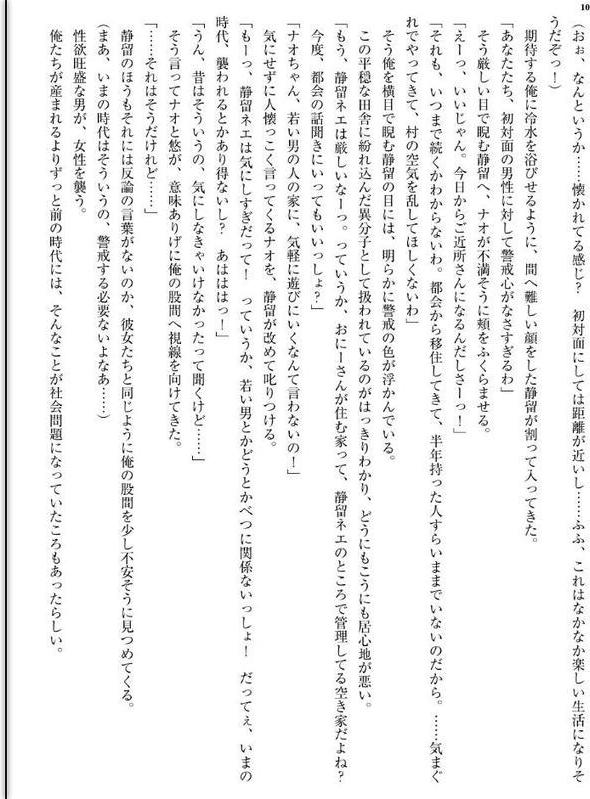 10
（おぉ、なんというか……懐かれてる感じ？　初対面にしては距離が近いし……ふふ、これはなかなか楽しい生活になりそ
うだぞっ！）
期待する俺に冷水を浴びせるように、間へ難しい顔をした静留が割って入ってきた。
「あなたたち、初対面の男性に対して警戒心がなさすぎるわ」
そう厳しい目で睨む静留へ、ナオが不満そうに頬をふくらませる。
「えーっ、いいじゃん。今日からご近所さんになるんだしさーっ！」
「それも、いつまで続くかわからないわ。都会から移住してきて、半年持った人すらいままでいないのだから。……気まぐ
れでやってきて、村の空気を乱してほしくないわ」
そう俺を横目で睨む静留の目には、明らかに警戒の色が浮かんでいる。
この平穏な田舎に紛れ込んだ異分子として扱われているのがはっきりわかり、どうにもこうにも居心地が悪い。
「もう、静留ネエは厳しいなーっ。っていうか、おにーさんが住む家って、静留ネエのところで管理してる空き家だよね？
今度、都会の話聞きにいってもいいっしょ？」
「ナオちゃん、若い男の人の家に、気軽に遊びにいくなんて言わないの！」
気にせずに人懐っこく言ってくるナオを、静留が改めて叱りつける。
「もーっ、静留ネエは気にしすぎだって！　っていうか、若い男とかどうとかべつに関係ないっしょ！　だってぇ、いまの
時代、襲われるとかあり得ないし？　あはははっ！」
「うん、昔はそういうの、気にしなきゃいけなかったって聞くけど……」
そう言ってナオと悠が、意味ありげに俺の股間へ視線を向けてきた。
「……それはそうだけれど……」
静留のほうもそれには反論の言葉がないのか、彼女たちと同じように俺の股間を少し不安そうに見つめてくる。
（まあ、いまの時代はそういうの、警戒する必要ないよなあ……）
性欲旺盛な男が、女性を襲う。
俺たちが産まれるよりずっと前の時代には、そんなことが社会問題になっていたころもあったらしい。